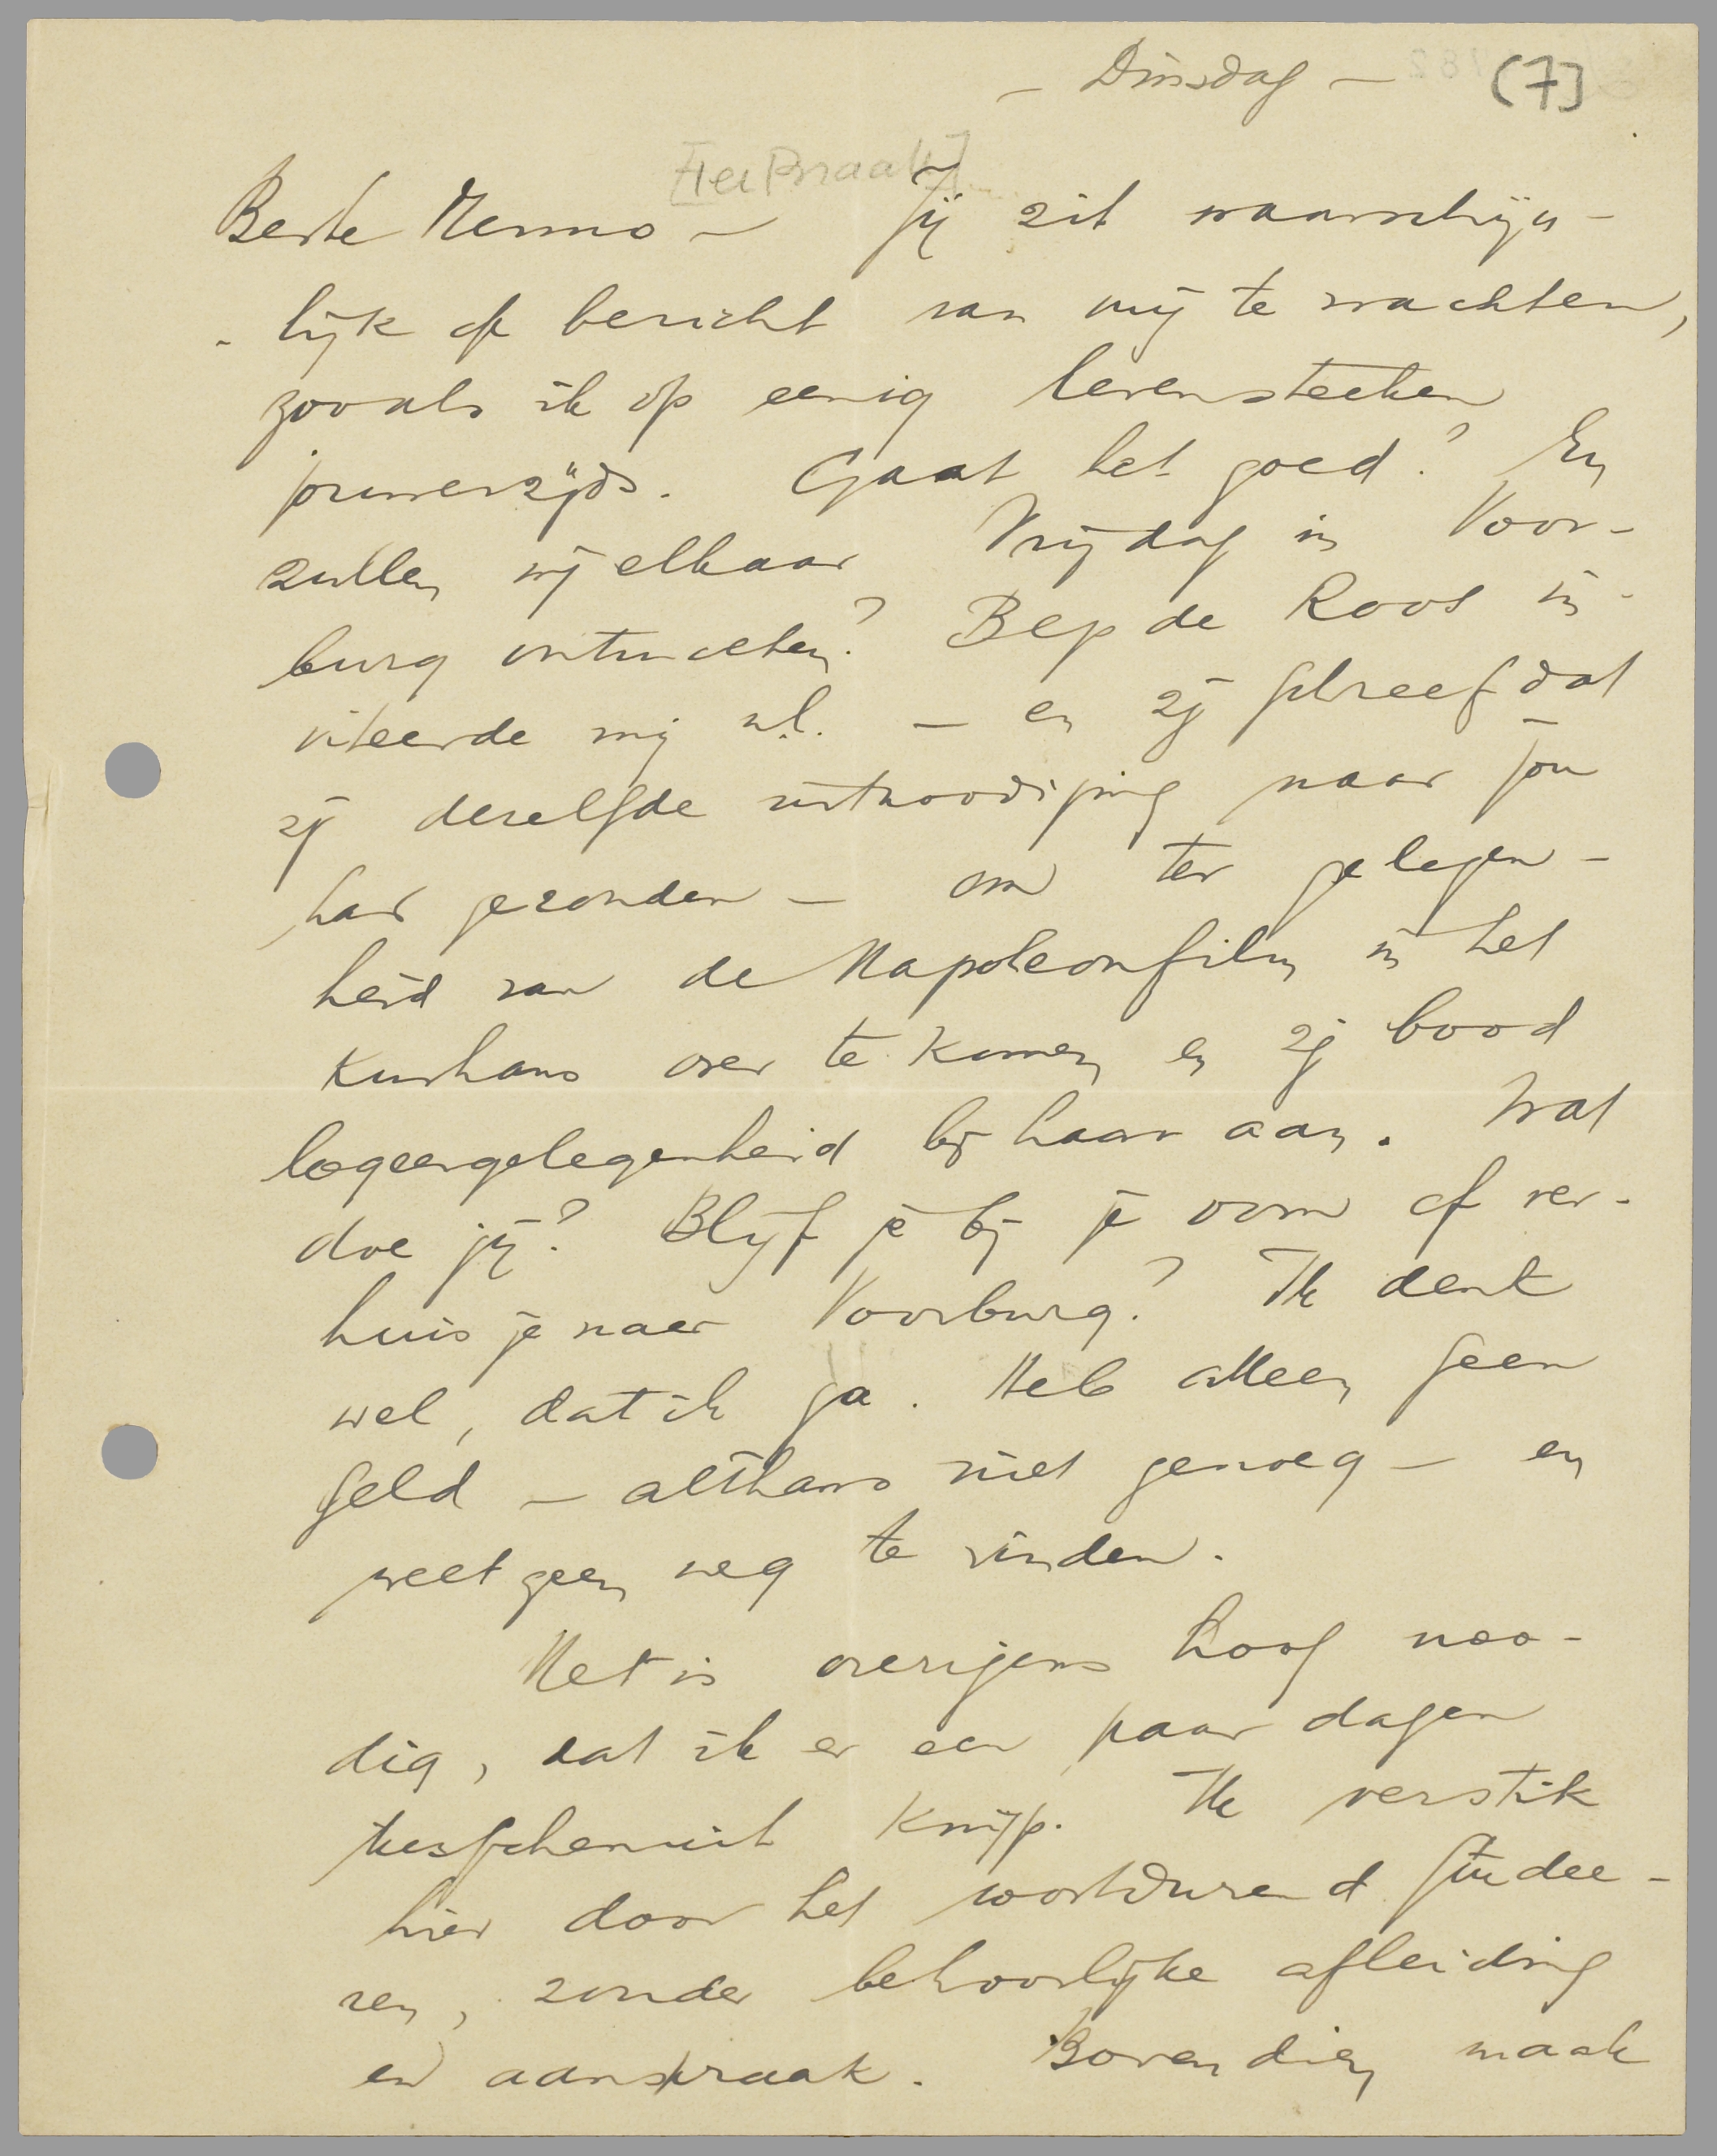 – Dinsdag – (7]
[Ter Braak]
Beste Menno – Jij zit waarschijn-
lijk op bericht van mij te wachten,
zooals ik op eenig levensteeken
jouwerzijds. Gaat het goed? En
zullen wij elkaar Vrijdag in Voor-
burg ontmoeten? Bep de Roos in-
viteerde mij n.l. – en zij schreef dat
zij dezelfde uitnoodiging naar jou
had gezonden – om ter gelegen-
heid van de Napoleonfilm in het
Kurhaus over te komen en zij bood
logeergelegenheid bij haar aan. Wat
doe jij? Blijf je bij je oom of ver-
huis je naar Voorburg? Ik denk
wel, dat ik ga. Heb alleen geen
geld – althans niet genoeg – en
weet geen weg te vinden.
Het is overigens hoog noo-
dig, dat ik er een paar dagen
tusschenuit knijp. Ik verstik
hier door het voortdurend studee-
ren, zonder behoorlijke afleiding
en aanspraak. Bovendien maak